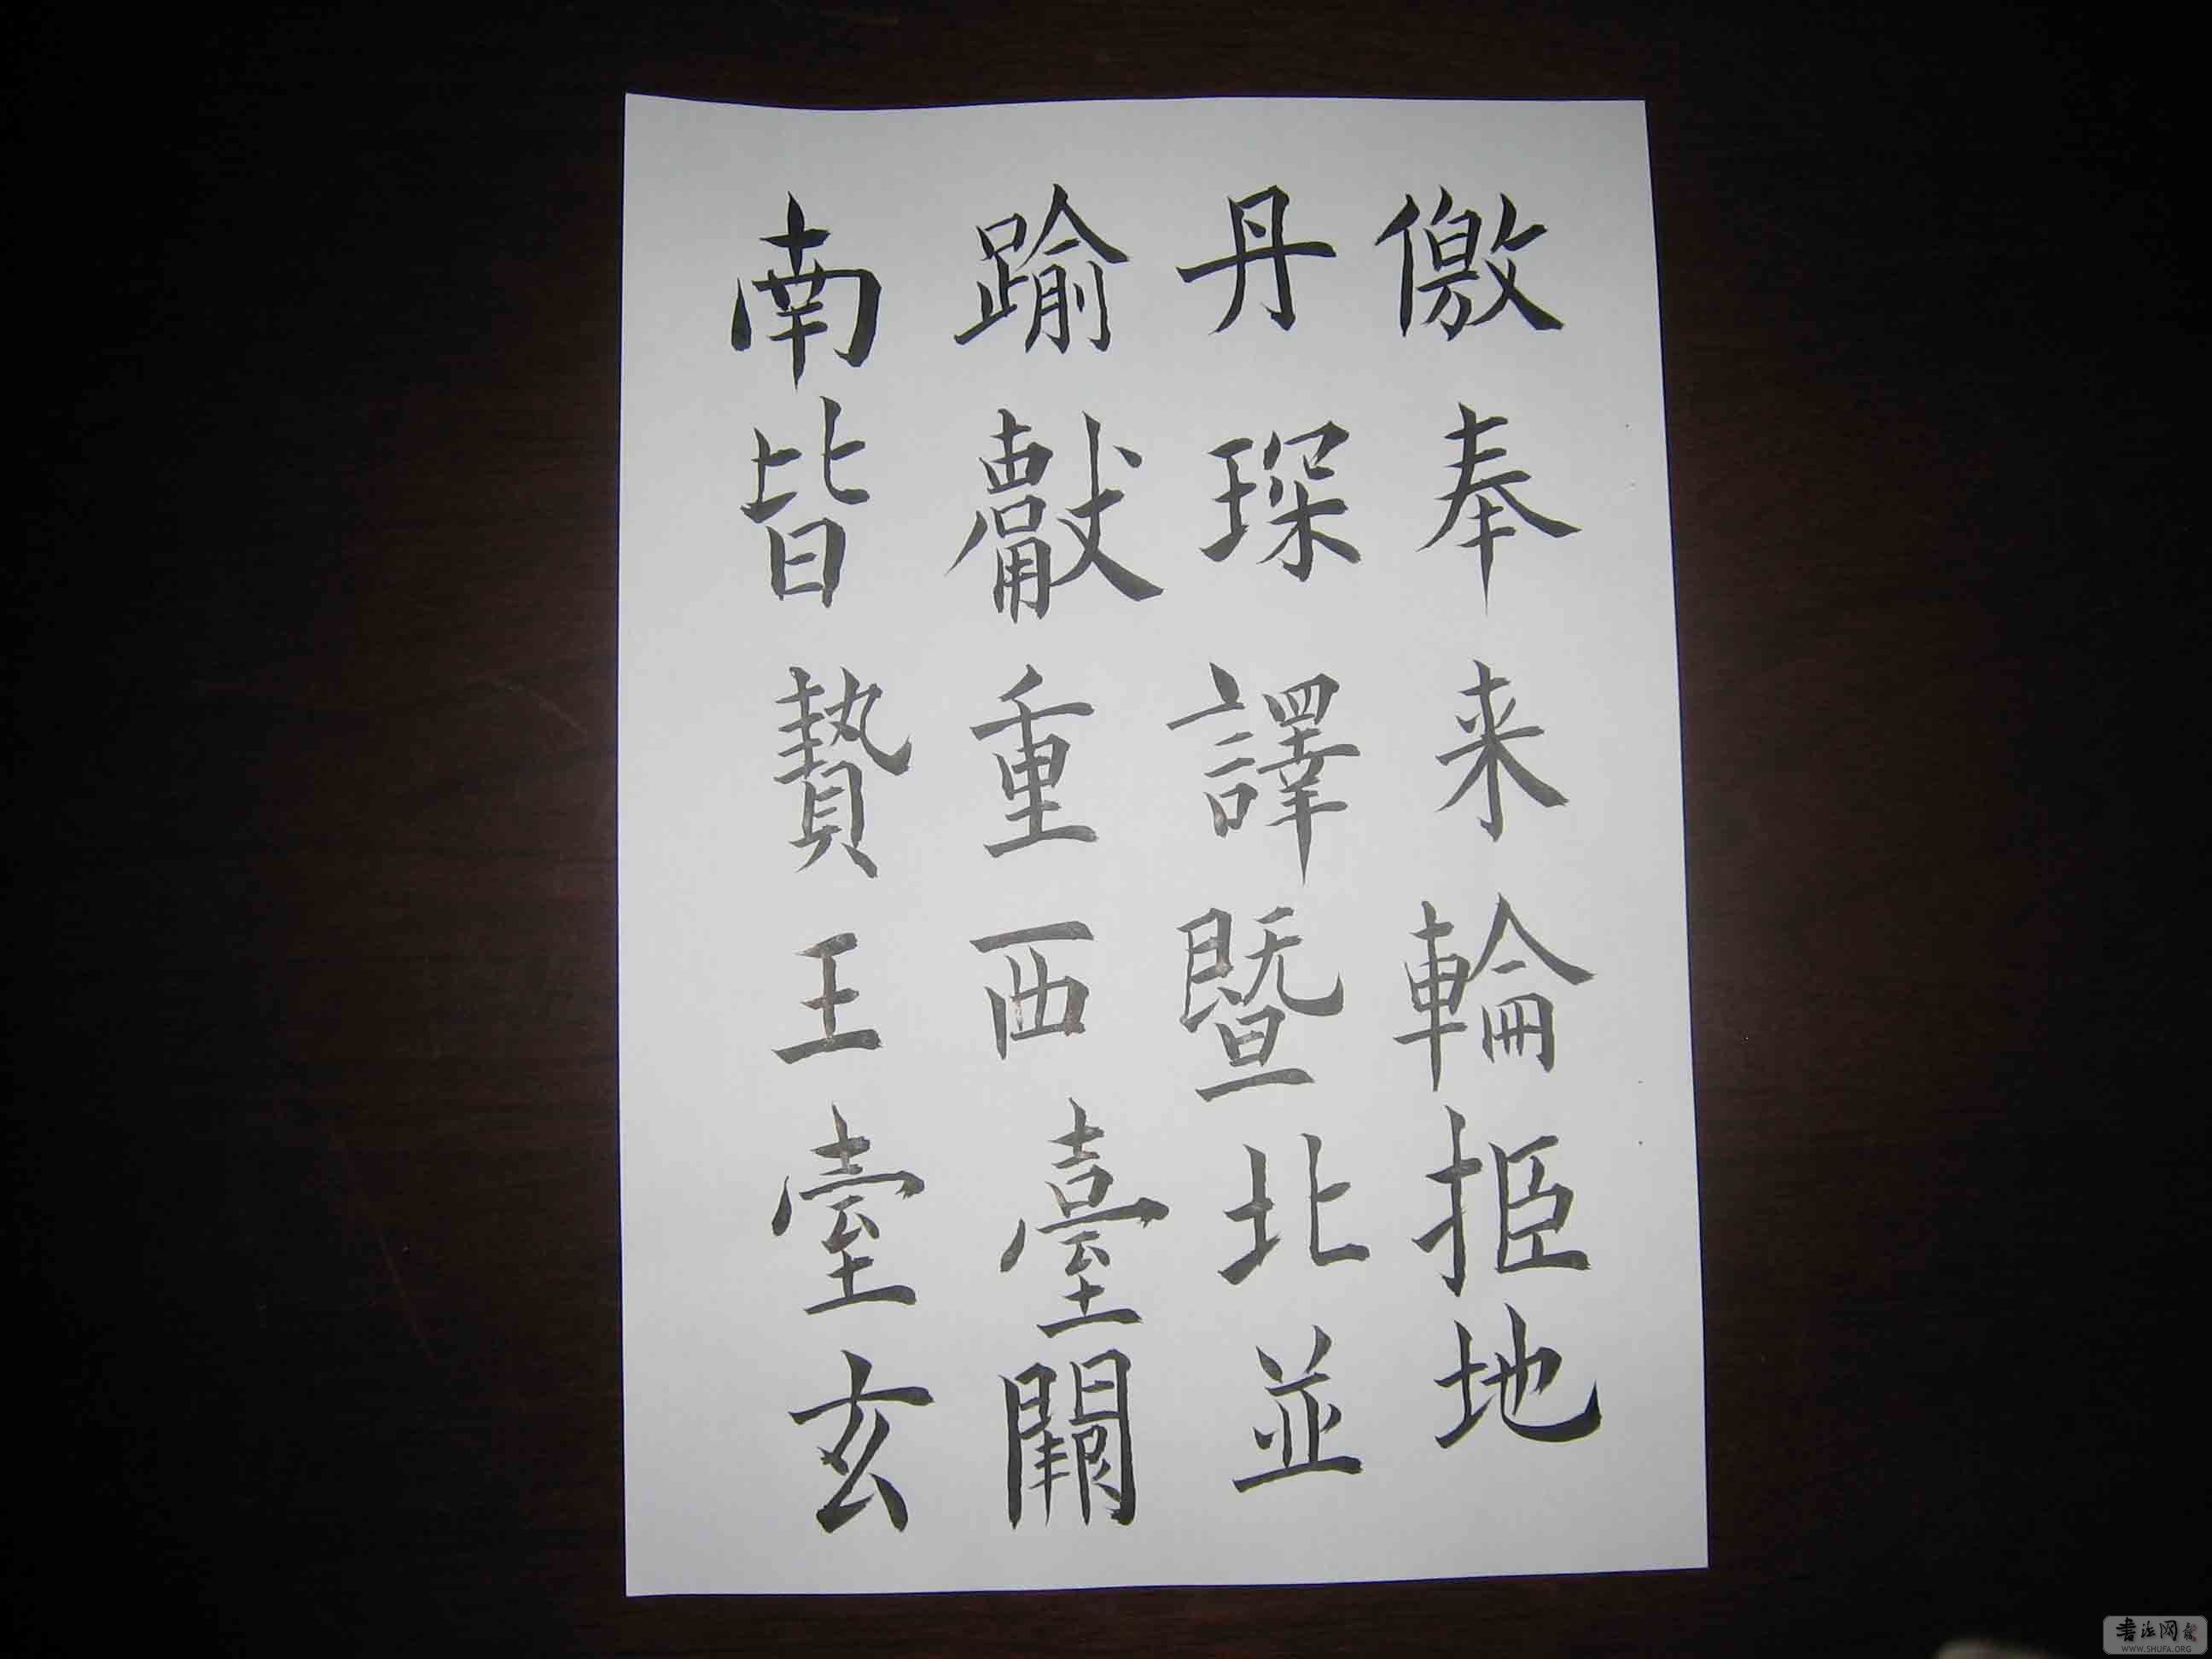 南踰丹儌
皆獻琛奉
贄重譯来
王西暨輪
臺臺北拒
玄闕並地
書法网
WWW.SHUFA.ORG